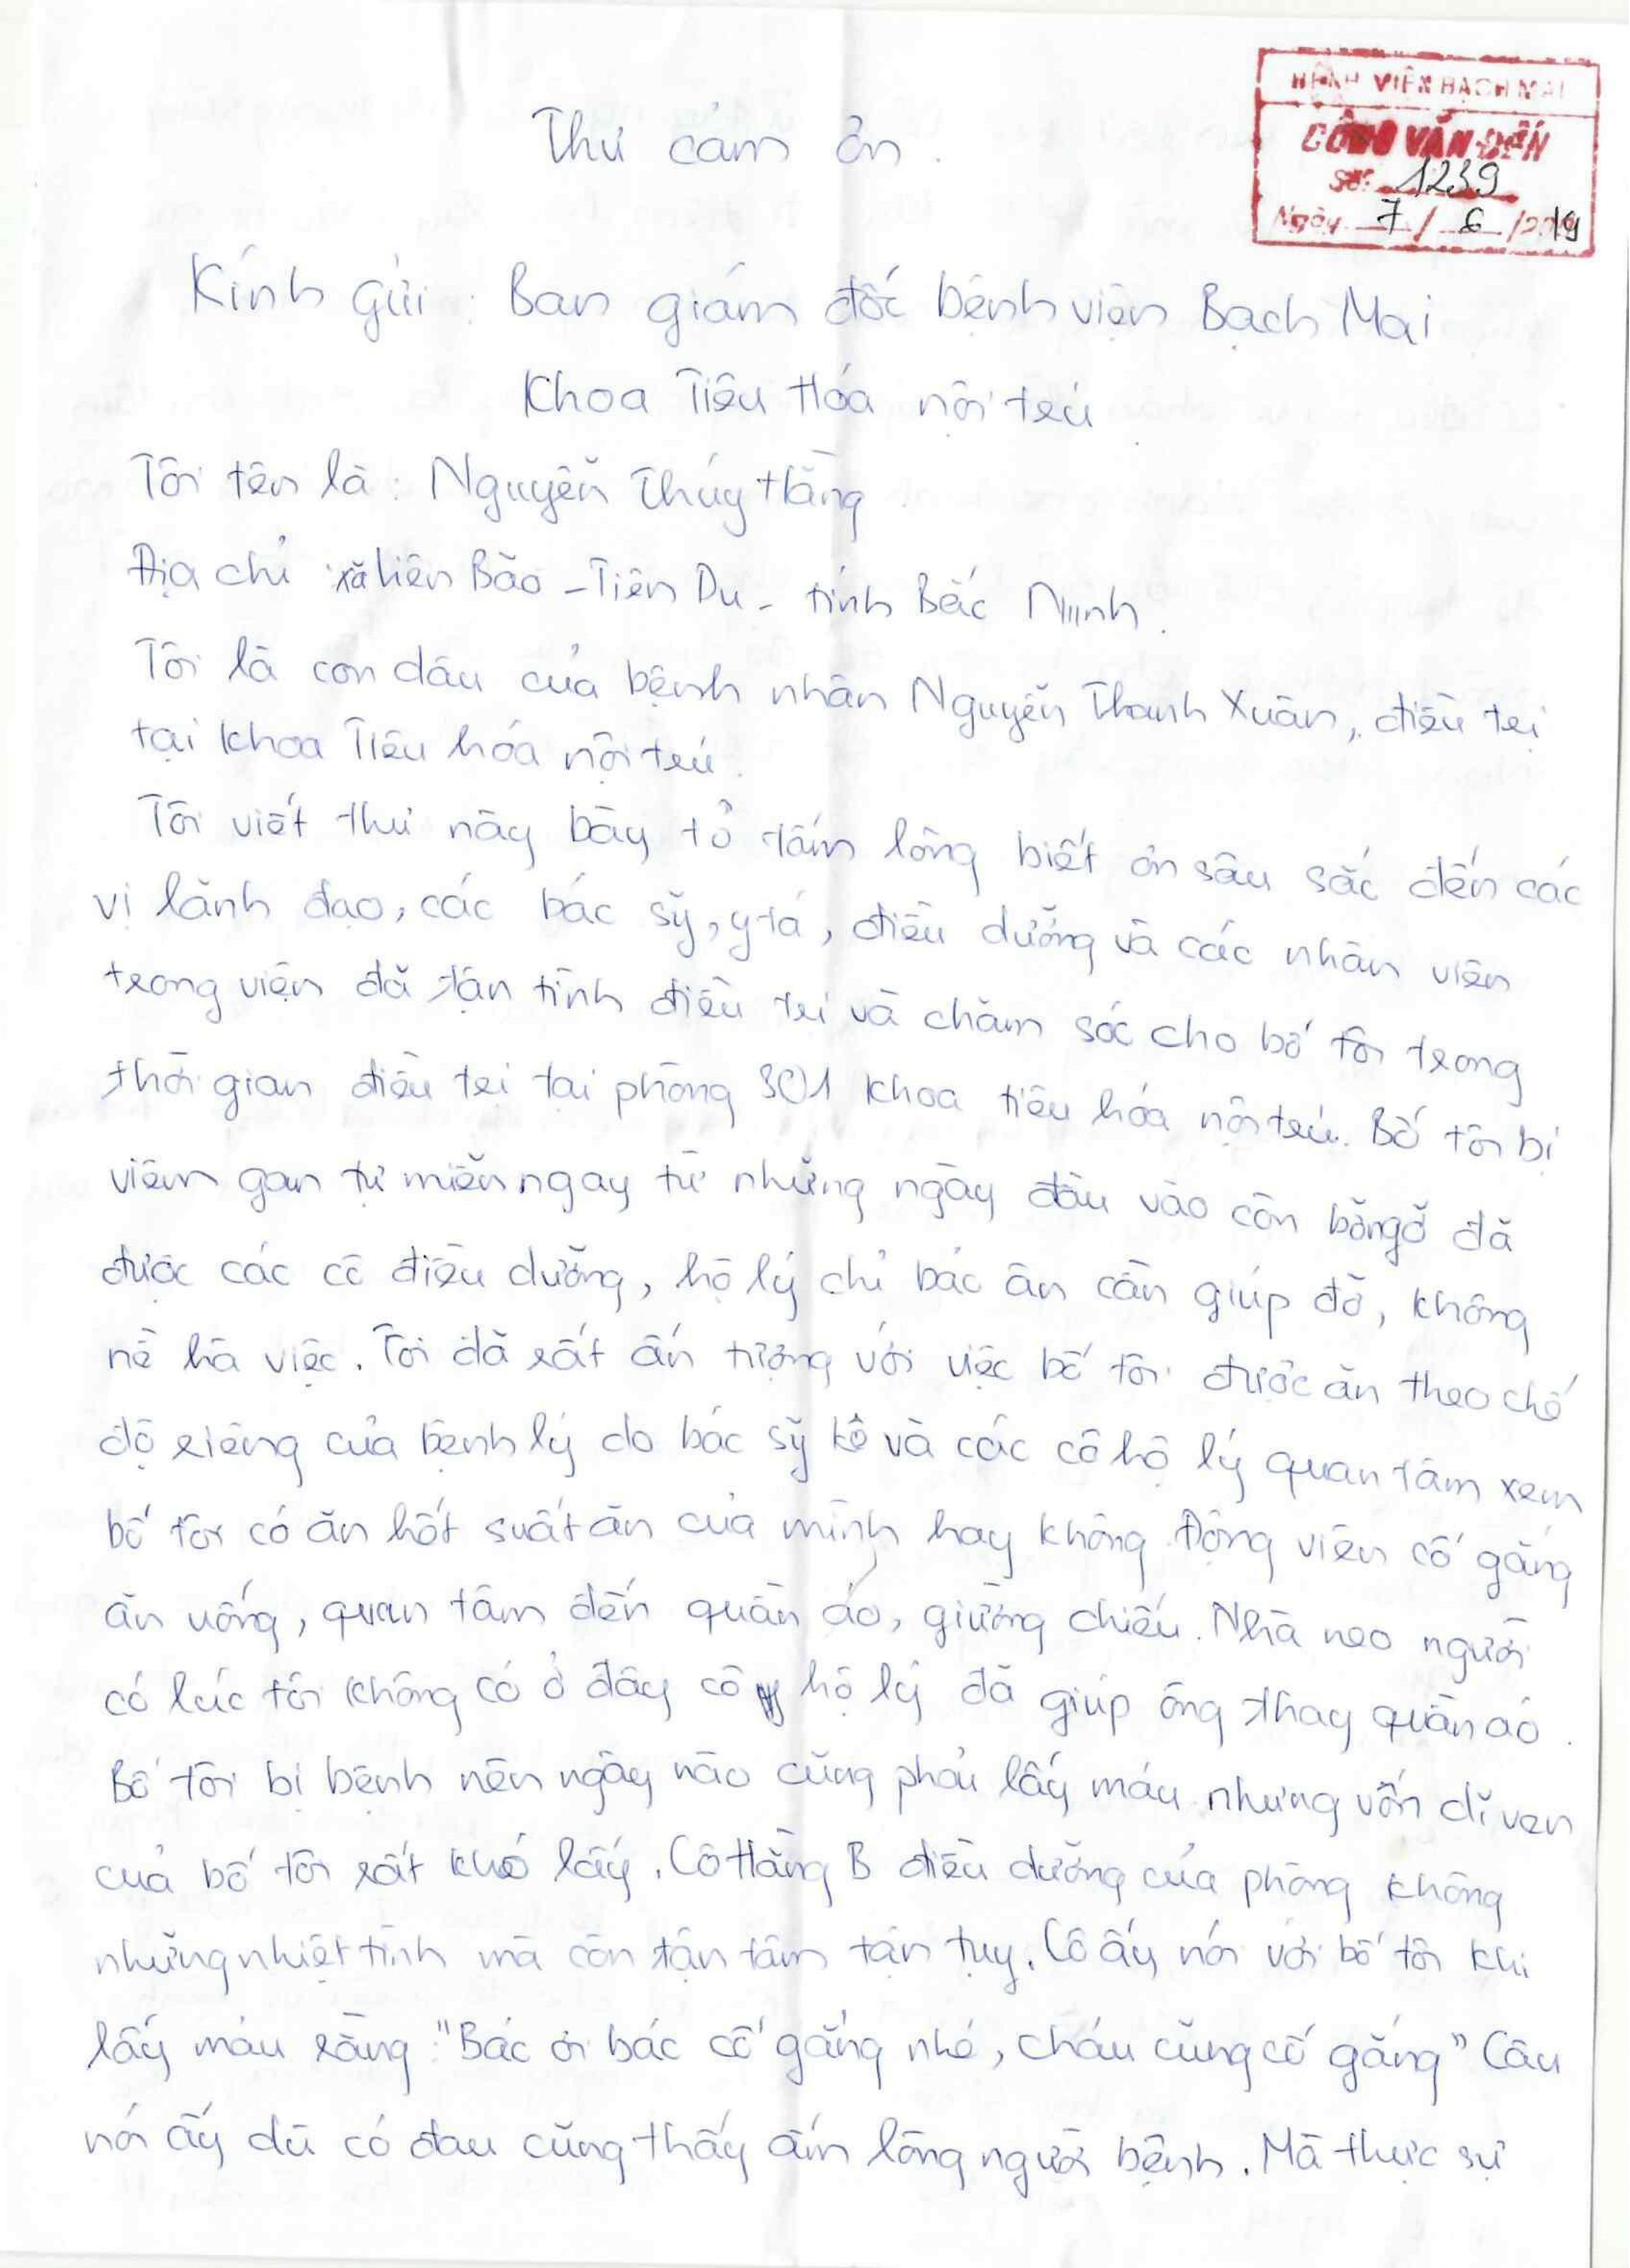 BỆNH VIỆN BẠCH MAI
CÔNG VĂN ĐẾN
Số: 1239
Ngày 7 / 6 /2019
Thư cảm ơn.
Kính gửi: Ban giám đốc bệnh viện Bạch Mai
Khoa Tiêu Hóa nội trú
Tôi tên là: Nguyễn Thúy Hằng
Địa chỉ: xã Liên Bão - Tiên Du - tỉnh Bắc Ninh.
Tôi là con dâu của bệnh nhân Nguyễn Thanh Xuân, điều trị
tại khoa Tiêu hóa nội trú.
Tôi viết thư này bày tỏ tấm lòng biết ơn sâu sắc đến các
vị lãnh đạo, các bác sỹ, y tá, điều dưỡng và các nhân viên
trong viện đã tận tình điều trị và chăm sóc cho bố tôi trong
thời gian điều trị tại phòng 301 khoa tiêu hóa nội trú. Bố tôi bị
viêm gan tự miễn ngay từ những ngày đầu vào còn bỡ ngỡ đã
được các cô điều dưỡng, hộ lý chỉ bác ân cần giúp đỡ, không
nề hà việc. Tôi đã rất ấn tượng với việc bố tôi được ăn theo chế
độ riêng của bệnh lý do bác sỹ kê và các cô hộ lý quan tâm xem
bố tôi có ăn hết suất ăn của mình hay không. Động viên cố gắng
ăn uống, quan tâm đến quần áo, giường chiếu. Nhà neo người
có lúc tôi không có ở đây cô hộ lý đã giúp ông thay quần áo.
Bố tôi bị bệnh nên ngày nào cũng phải lấy máu nhưng vốn dĩ ven
của bố tôi rất khó lấy. Cô Hằng B điều dưỡng của phòng không
những nhiệt tình mà còn tận tâm tận tụy. Cô ấy nói với bố tôi khi
lấy máu rằng: "Bác ơi bác cố gắng nhé, cháu cũng cố gắng" Câu
nói ấy dù có đau cũng thấy ấm lòng người bệnh. Mà thực sự